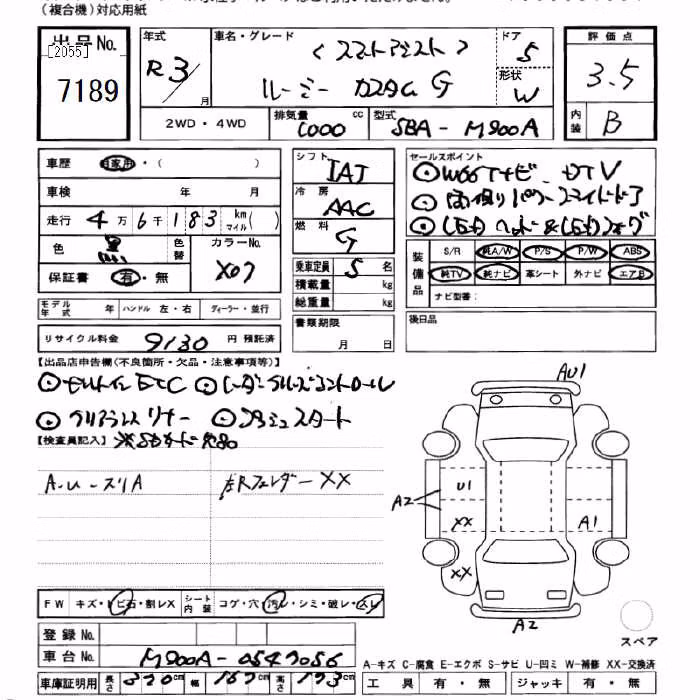 (複合機)対応用紙
出品No. [2055] 7189
年式 R3 月
車名・グレード (スマートアシスト)
ルーミー カスタムG
ドア 5
形状 W
評価点 3.5
内装 B
2WD・4WD
排気量 1000 cc
型式 5BA-M900A
車歴 自家用・( )
車検 年 月
走行 4万6千183 km マイル( )
色 黒 色替 カラーNo. X07
保証書 有・無
シフト IAT
冷房 AAC
燃料 G
乗車定員 5名
積載量 kg
総重量 kg
セールスポイント
W66TナビーDTV
両側パワースライドドア
LEDヘッド&LEDフォグ
装備品 S/R 純A/W P/S P/W ABS
純TV 純ナビ 革シート 外ナビ エアB
ナビ型番:
モデル年式 年 ハンドル 左・右 ディーラー・並行
リサイクル料金 9130 円 預託済
書類期限 月 日
後日品
【出品店申告欄(不良箇所・欠品・注意事項等)】
ビルトインETC レーダークルーズコントロール
クリアランスソナー プッシュスタート
【検査員記入】
A-U-スリA
左Rフェンダー XX
AU1
U1
A2
XX
A1
XX
A2
FW キズ・トビ石・割レX シート内装 コゲ・穴・汚レ・シミ・破レ・スレ
登録No.
車台No. M900A-0549056
車庫証明用 長さ 370cm 幅 167cm 高さ 173cm
スペア
A-キズ C-腐食 E-エクボ S-サビ U-凹ミ W-補修 XX-交換済
工具 有・無 ジャッキ 有・無